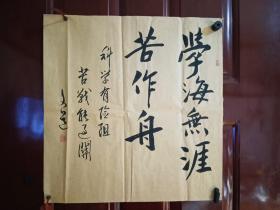 學海無涯
苦作舟
科学有险阻
苦战能过關